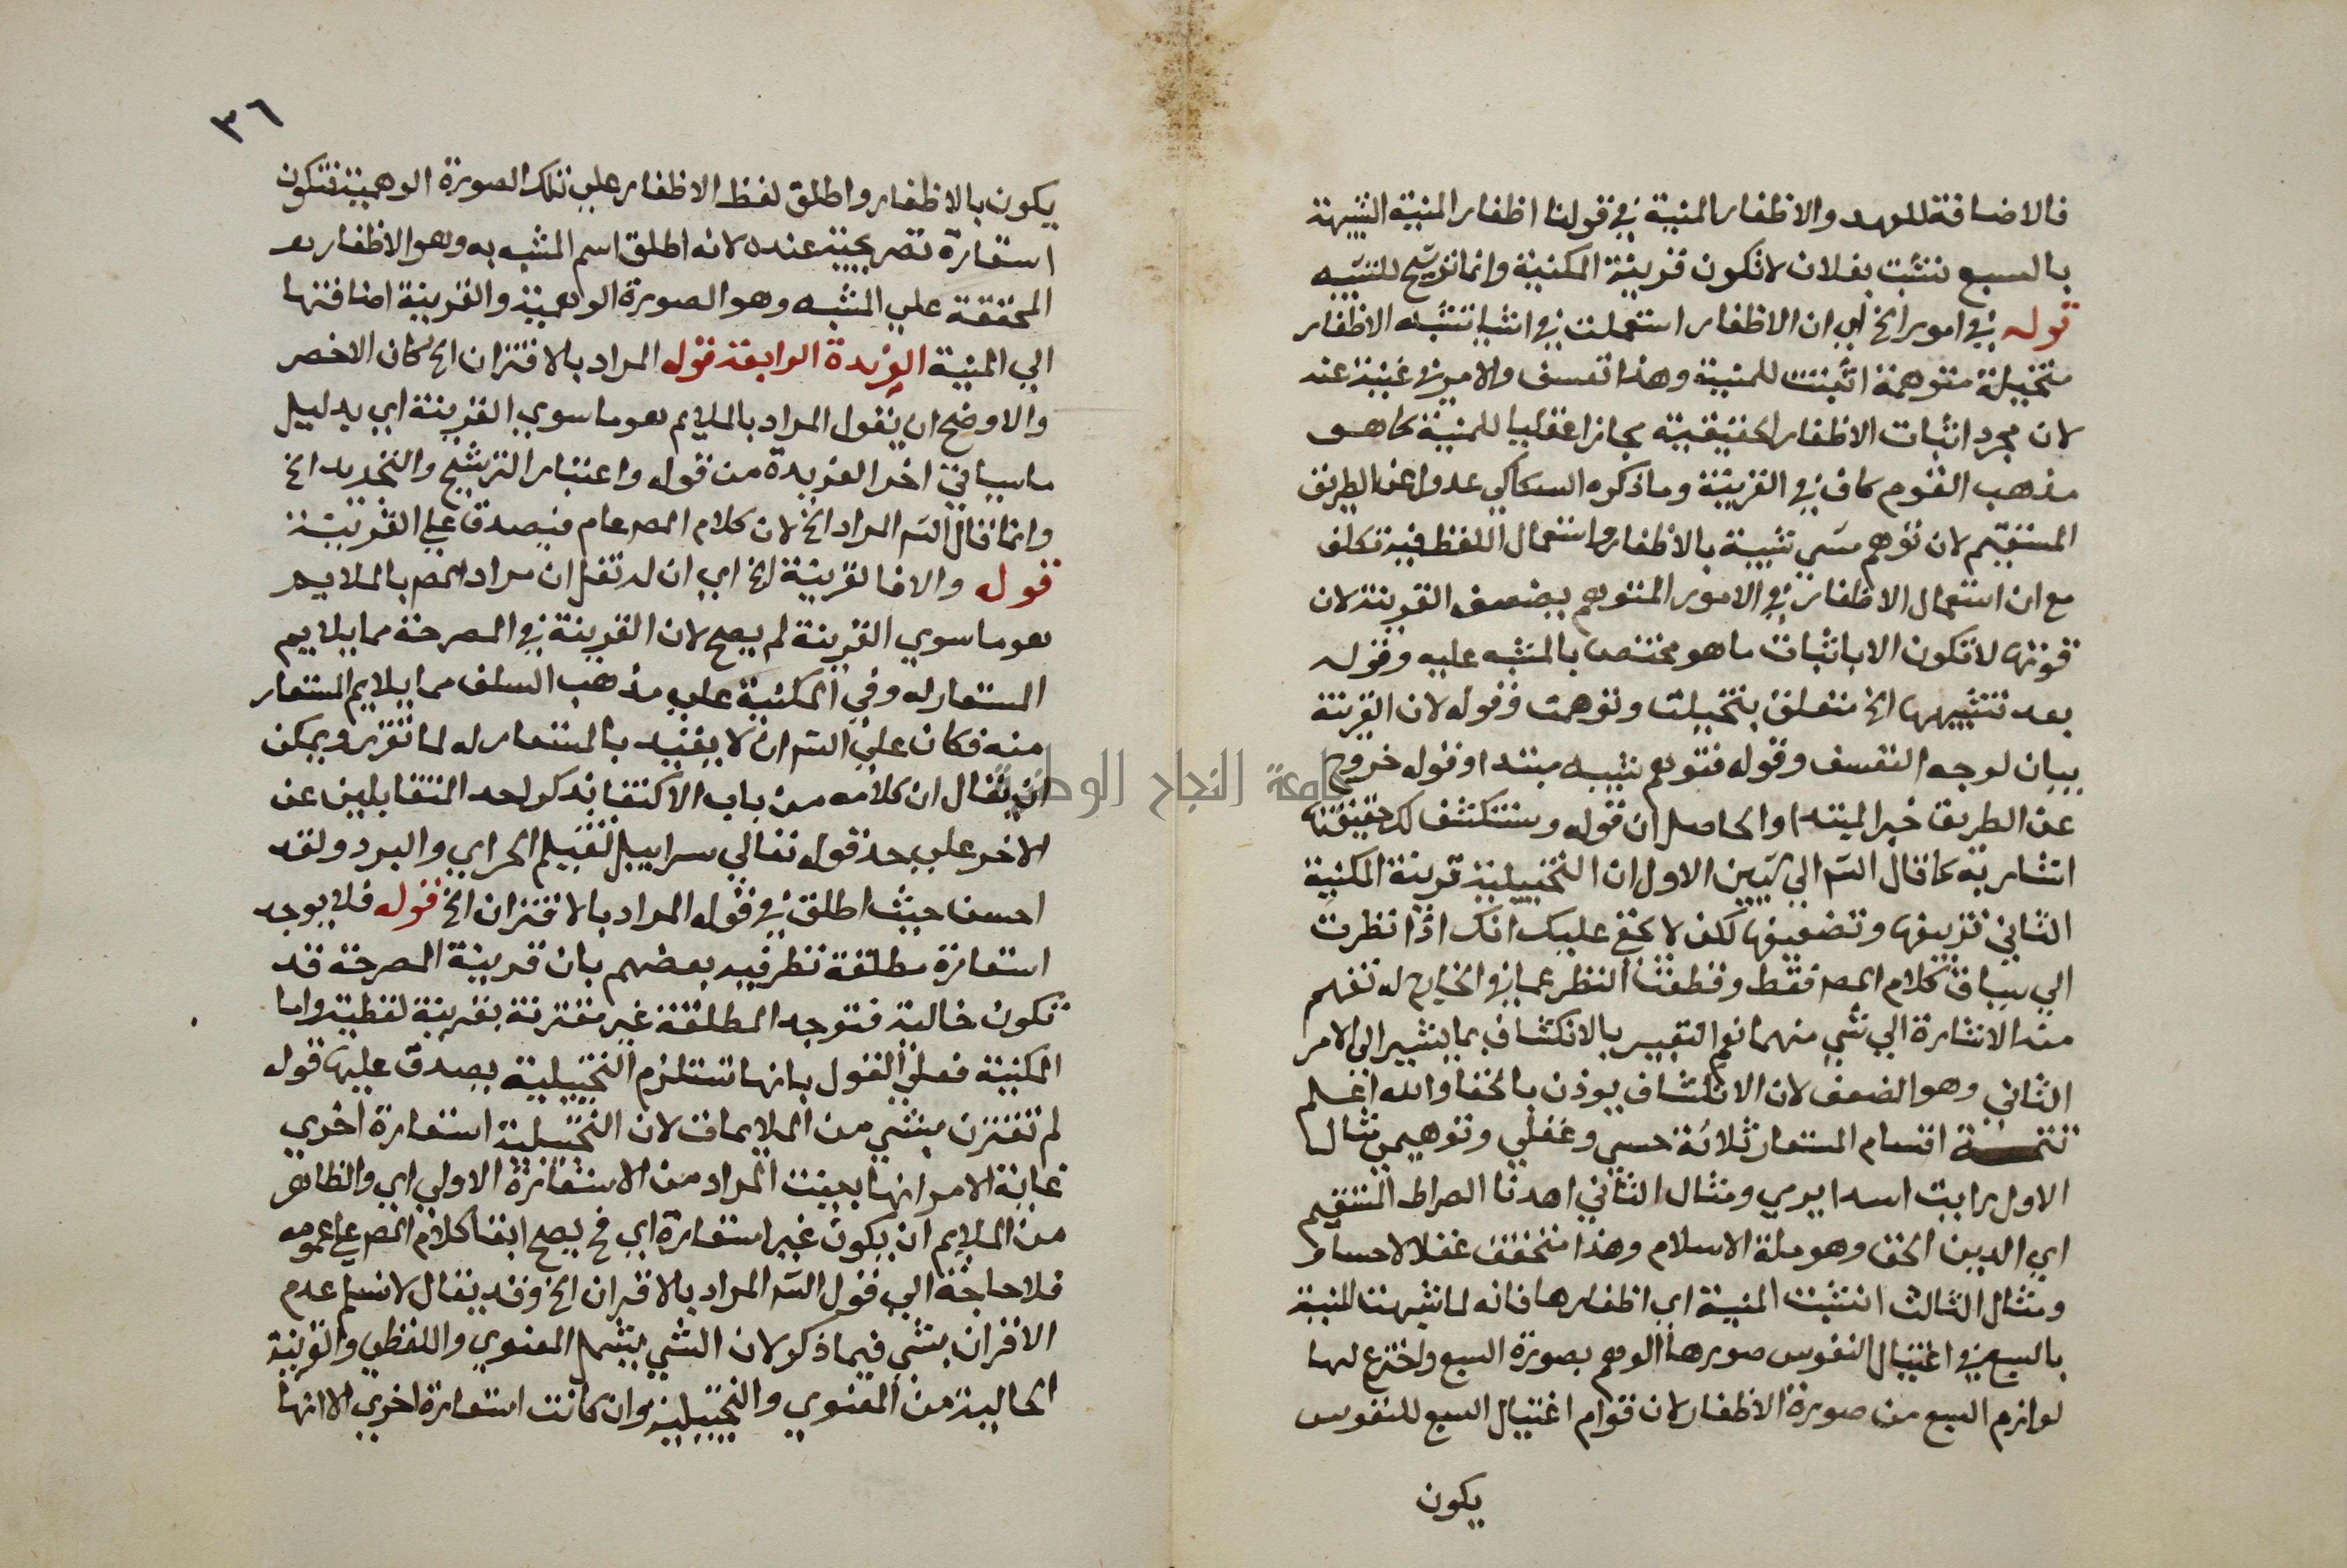 فالاضافة للعهد والاظفار المنية في قولنا اظفار المنية الشبيهة
بالسبع نشبت بفلان لا تكون قرينة المكنية وانما ترشيح للتشبيه
قوله في امور الخ اي ان الاظفار استعملت في اشيا تشبه الاظفار
متخيلة متوهمة اثبتت للمنية وهذا تعسف والامر في غنية عنه
لان مجرد اثبات الاظفار الحقيقية مجازا عقليا للمنية كما هو
مذهب القوم كاف في القرينة وما ذكره السكاكي عدول عن الطريق
المستقيم لان توهم شي تشبيه بالاظفار واستعمال اللفظ فيه تكلف
مع ان استعمال الاظفار في الامور المتوهم يضعف القرينة لان
قوتها لا تكون الا باثبات ما هو مختص بالمشبه عليه وقوله
بعد تشبيهها الخ متعلق بتخيلت وتوهمت وقوله لان القرينة
بيان لوجه التعسف وقوله فتوهم تشبيه مبتدا وقوله خروج
عن الطريق خبر المبتدا والحاصل ان قوله وستنكشف لك حقيقته
اشار به كما قال الش الي شيين الاول ان التخييلية قرينة المكنية
الثاني تزييفها وتضعيفها لكن لا يخفى عليك انك اذا نظرت
الي سياق كلام المص فقط وقطعت النظر عما في الخارج لم تفهم
منه الاشارة الي شي منهما نعم التعبير بالانكشاف بما يشير الى الامر
الثاني وهو الضعف لان الانكشاف يوذن بالخفا والله اعلم
تتمة اقسام المستعار ثلاثة حسي وعقلي وتوهيمي مثال
الاول رايت اسدا يرمي ومثال الثاني اهدنا الصراط المستقيم
اي الدين الحق وهو ملة الاسلام وهذا متحقق عقلا لا حسا
ومثال الثالث انشبت المنية اي اظفارها فانه لما شبهت المنية
بالسبع في اغتيال النفوس صورها الوهم بصورة السبع واخترع لها
لوازم السبع من صورة الاظفار لان قوام اغتيال السبع للنفوس
يكون
٣٦
يكون بالاظفار واطلق لفظ الاظفار علي تلك الصورة الوهمية فتكون
استعارة تصريحية عنده لانه اطلق اسم المشبه به وهو الاظفار
المحققة علي المشبه وهو الصورة الوهمية والقرينة اضافتها
الي المنية الفريدة الرابعة قوله المراد بالاقتران الخ كان الاخصر
والاوضح ان يقول المراد بالملايم هو ما سوي القرينة اي بدليل
ما سياتي اخر الفريدة من قوله واعتبار الترشيح والتجريد الخ
وانما قال الش المراد الخ لان كلام المص عام فيصدق علي القرينة
قوله والا فالقرينة الخ اي ان لم تقل ان مراد المص بالملايم
هو ما سوي القرينة لم يصح لان القرينة في المصرحة مما يلايم
المستعار له وفي المكنية علي مذهب السلف مما يلايم المستعار
منه فكان علي الش ان لا يقيد بالمستعار له لما تقرر ويمكن
ان يقال ان كلامه من باب الاكتفا بذكر احد المتقابلين عن
الاخر علي حد قوله تعالي سرابيل تقيكم الحر اي والبرد ولقد
احسن حيث اطلق في قوله المراد بالاقتران الخ قوله فلا يوجد
استعارة مطلقة تنظر فيه بعضهم بان قرينة المصرحة قد
تكون حالية فتوجد المطلقة غير مقترنة بقرينة لفظية واما
المكنية فعلي القول بانها تستلزم التخييلية يصدق عليها قوله
لم تقترن بشي من الملايمات لان التخييلية استعارة اخري
غاية الامر انها بينت المراد من الاستعارة الاولي اي والظاهر
من الملايم ان يكون غير استعارة اي فح يصح ابقا كلام المص علي عمومه
فلا حاجة الي قول الش المراد بالاقتران الخ وقد يقال لا نسلم عدم
الاقتران بشي فيما ذكر لان الشي يشمل المعنوي واللفظي والقرينة
الحالية من المعنوي والتخييلية وان كانت استعارة اخري الا انها
جامعة النجاح الوطنية